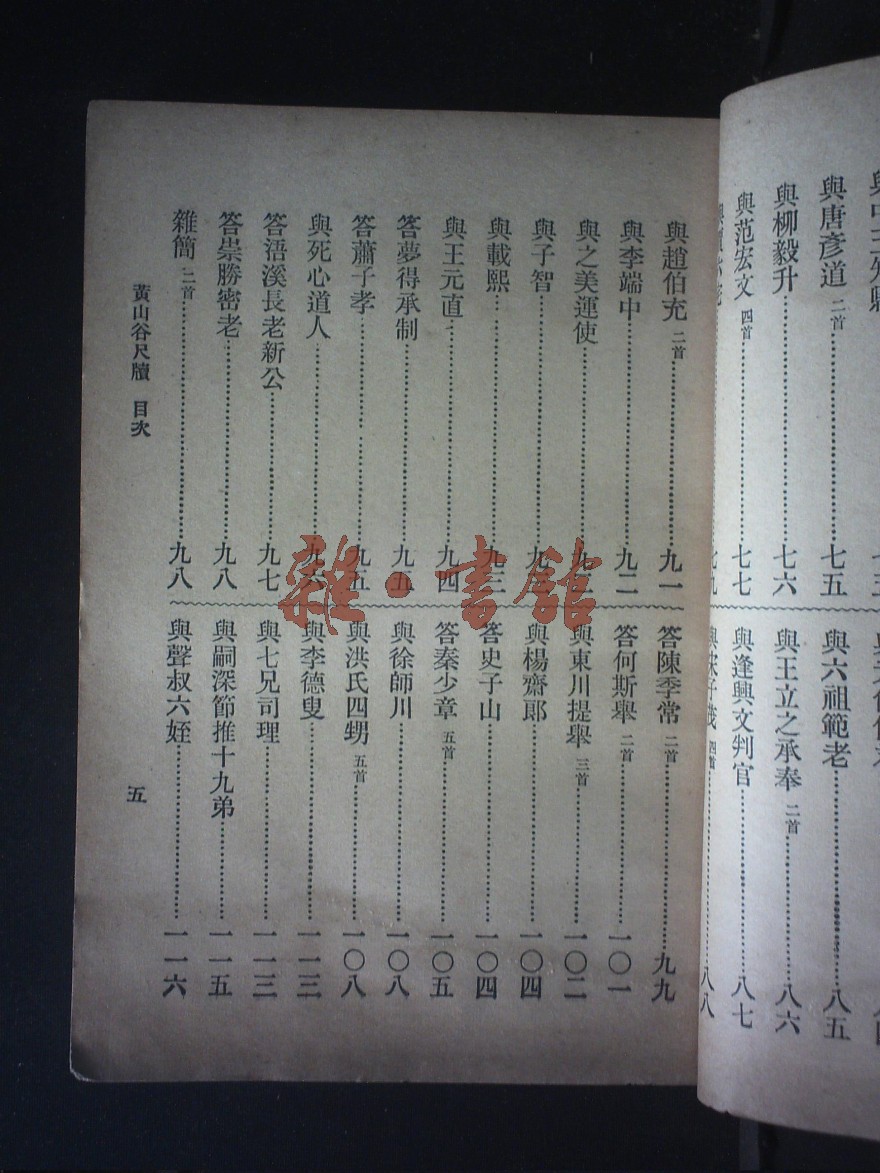 與唐彥道 二首……七五
與柳毅升……七六
與范宏文 四首……七七
七九
與六祖範老……八五
與王立之承奉 二首……八六
與逢興文判官……八七
與宋子茂 四首……八八
與趙伯充 二首……九一
與李端中……九二
與之美運使……九二
與子智……九
與載熙……九三
與王元直……九四
答夢得承制……九五
答蕭子孝……九五
與死心道人……九六
答浯溪長老新公……九七
答崇勝密老……九八
雜簡 二首……九八
答陳季常 二首……九九
答何斯舉 二首……一〇一
與東川提舉 三首……一〇二
與楊齋郎……一〇四
答史子山……一〇四
答秦少章 五首……一〇五
與徐師川……一〇八
與洪氏四甥 五首……一〇八
與李德叟……一一三
與七兄司理……一一三
與嗣深節推十九弟……一一五
與聲叔六姪……一一六
黃山谷尺牘 目次
五
雜·書館